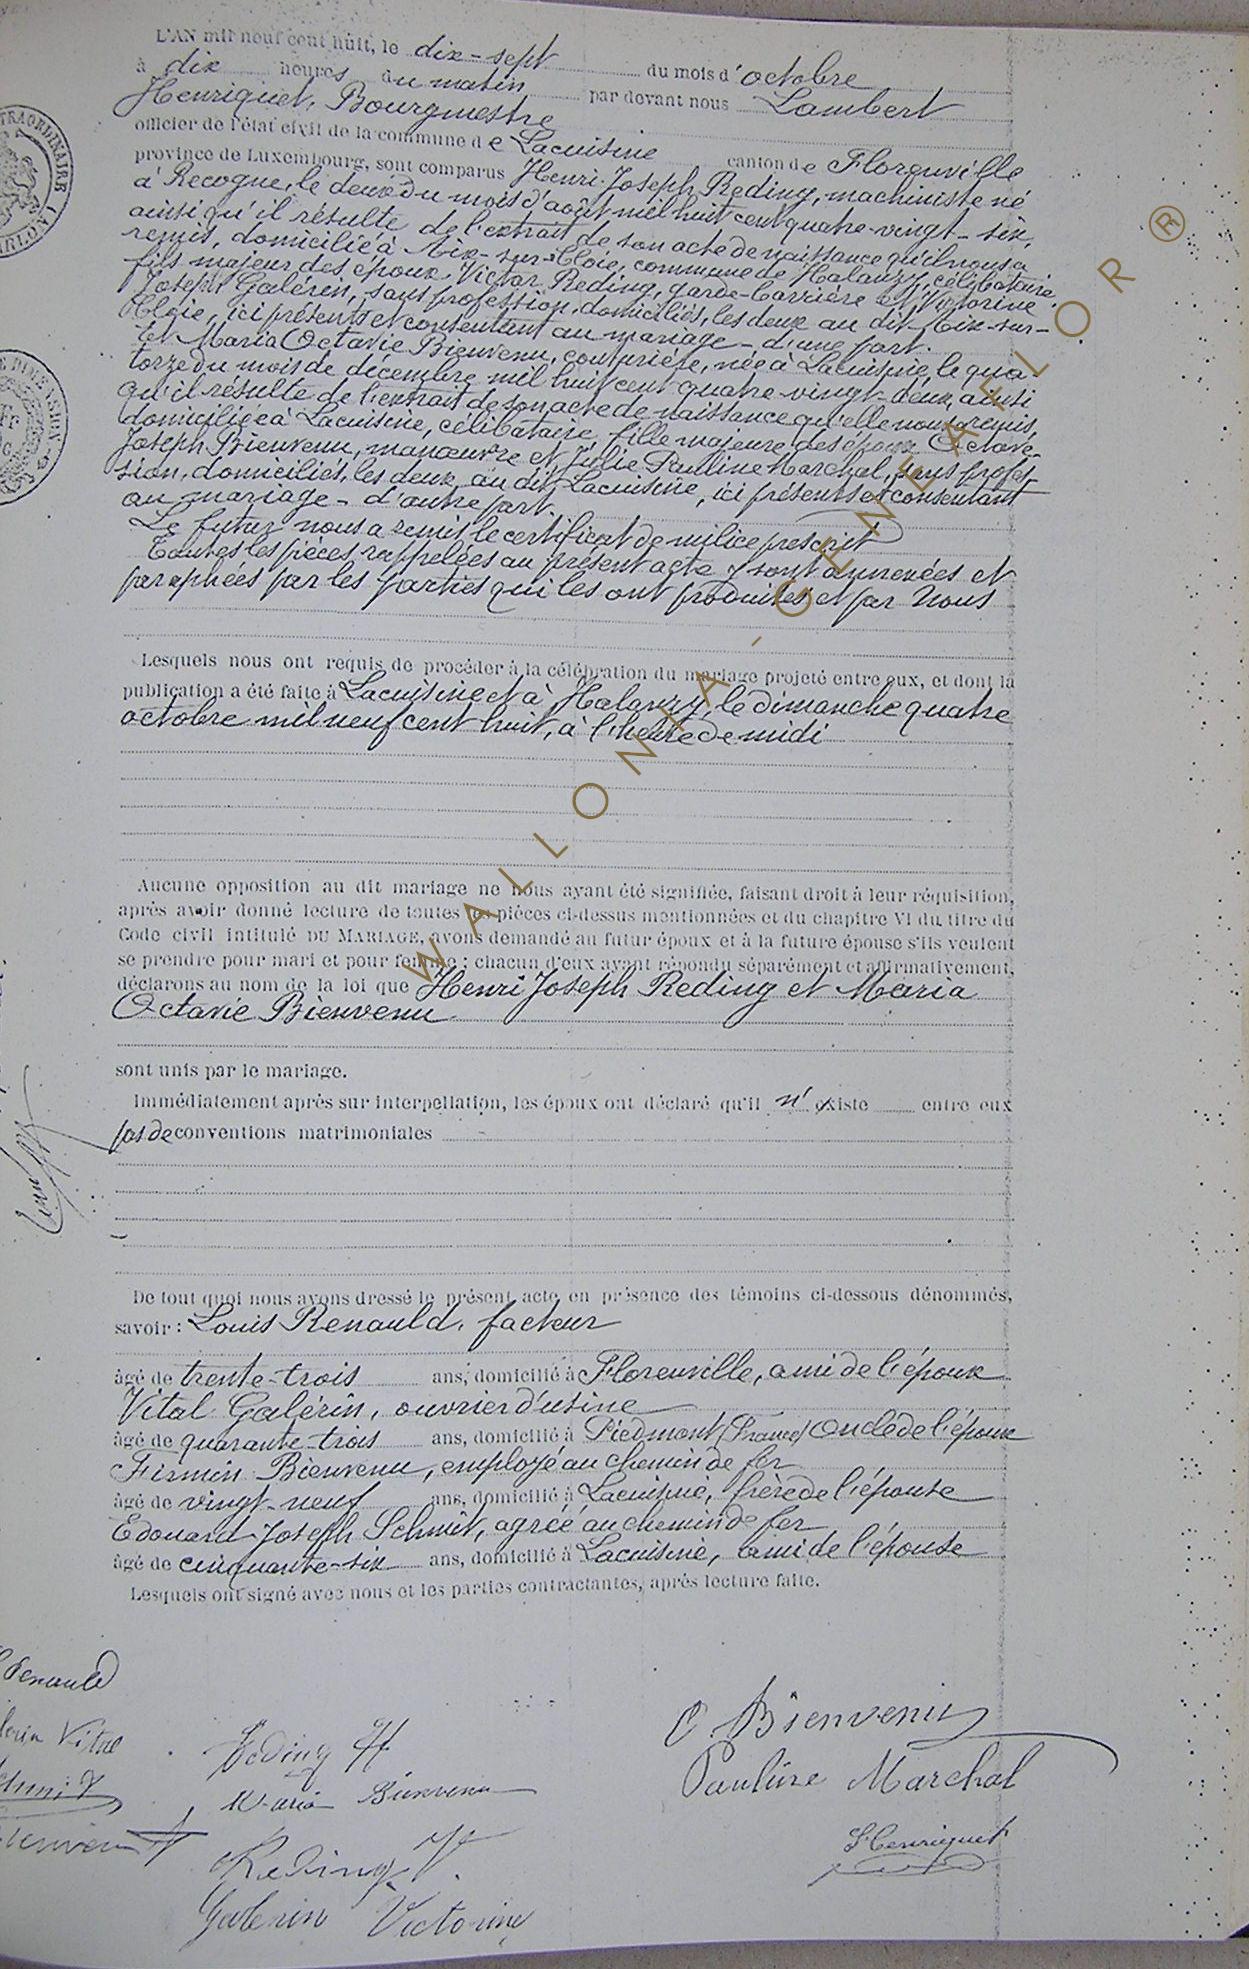 L'AN mil neuf cent huit, le dix-sept du mois d'octobre
à dix heures du matin par devant nous Lambert
Henriquet, Bourgmestre
officier de l'état civil de la commune de Lacuisine canton de Florenville
province de Luxembourg, sont comparus Henri Joseph Reding, machiniste né
à Recogne, le deux du mois d'août mil huit cent quatre-vingt-six,
ainsi qu'il résulte de l'extrait de son acte de naissance qu'il nous a
remis, domicilié à Aix-sur-Cloie, commune de Halanzy, célibataire,
fils majeur des époux Victor Reding, garde-barrière et Victorine
Joseph Galerin, sans profession, domiciliés, les deux au dit Aix-sur-
Cloie, ici présents et consentant au mariage - d'une part.
Et Maria Octavie Bienvenu, couturière, née à Lacuisine, le qua-
torze du mois de décembre mil huit cent quatre-vingt-deux, ainsi
qu'il résulte de l'extrait de son acte de naissance qu'elle nous a remis,
domiciliée à Lacuisine, célibataire, fille majeure des époux Octave-
Joseph Bienvenu, manœuvre et Julie Pauline Marchal, sans profes-
sion, domiciliés, les deux au dit Lacuisine, ici présents et consentant
au mariage - d'autre part.
Le futur nous a remis le certificat de milice prescrit
Toutes les pièces rappelées au présent acte y sont annexées et
paraphées par les parties qui les ont produites et par Nous
Lesquels nous ont requis de procéder à la célébration du mariage projeté entre eux, et dont la
publication a été faite à Lacuisine et à Halanzy, le dimanche quatre
octobre mil neuf cent huit, à l'heure de midi
Aucune opposition au dit mariage ne nous ayant été signifiée, faisant droit à leur réquisition,
après avoir donné lecture de toutes les pièces ci-dessus mentionnées et du chapitre VI du titre du
Code civil intitulé DU MARIAGE, avons demandé au futur époux et à la future épouse s'ils veulent
se prendre pour mari et pour femme ; chacun d'eux ayant répondu séparément et affirmativement,
déclarons au nom de la loi que Henri Joseph Reding et Maria
Octavie Bienvenu
sont unis par le mariage.
Immédiatement après sur interpellation, les époux ont déclaré qu'il n'existe entre eux
pas de conventions matrimoniales
De tout quoi nous avons dressé le présent acte en présence des témoins ci-dessous dénommés,
savoir : Louis Renauld, facteur
âgé de trente-trois ans, domicilié à Florenville, ami de l'époux
Vital Galérin, ouvrier d'usine
âgé de quarante-trois ans, domicilié à Piedmont (France) Oncle de l'époux
Firmin Bienvenu, employé au chemin de fer
âgé de vingt-neuf ans, domicilié à Lacuisine, frère de l'épouse
Edouard Joseph Schmit, agréé au chemin de fer
âgé de cinquante-six ans, domicilié à Lacuisine, ami de l'épouse
Lesquels ont signé avec nous et les parties contractantes, après lecture faite.
Renauld
Vital
Reding H
Maria Bienvenu
Reding V.
Galerin Victorine
O. Bienvenu
Pauline Marchal
L Henriquet
WALLONIA-GENEAFLOR ®